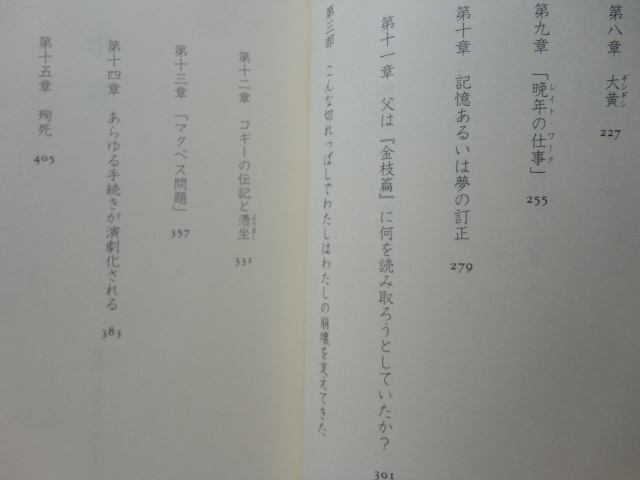 第八章 大黄 227
ギシギシ
第九章 「晩年の仕事」 255
レイト・ワーク
第十章 記憶あるいは夢の訂正 279
第十一章 父は『金枝篇』に何を読み取ろうとしていたか? 301
第三部 こんな切れっぱしでわたしはわたしの崩壊を支えてきた
第十二章 コギーの伝記と憑坐 331
よりまし
第十三章 「マクベス問題」 357
第十四章 あらゆる手続きが演劇化される 383
第十五章 殉死 405